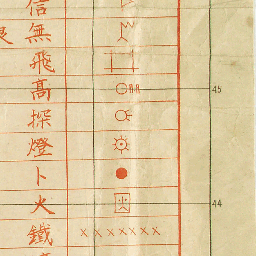 信
無
飛
高
探
燈
ト
火
鐵
45
44
火